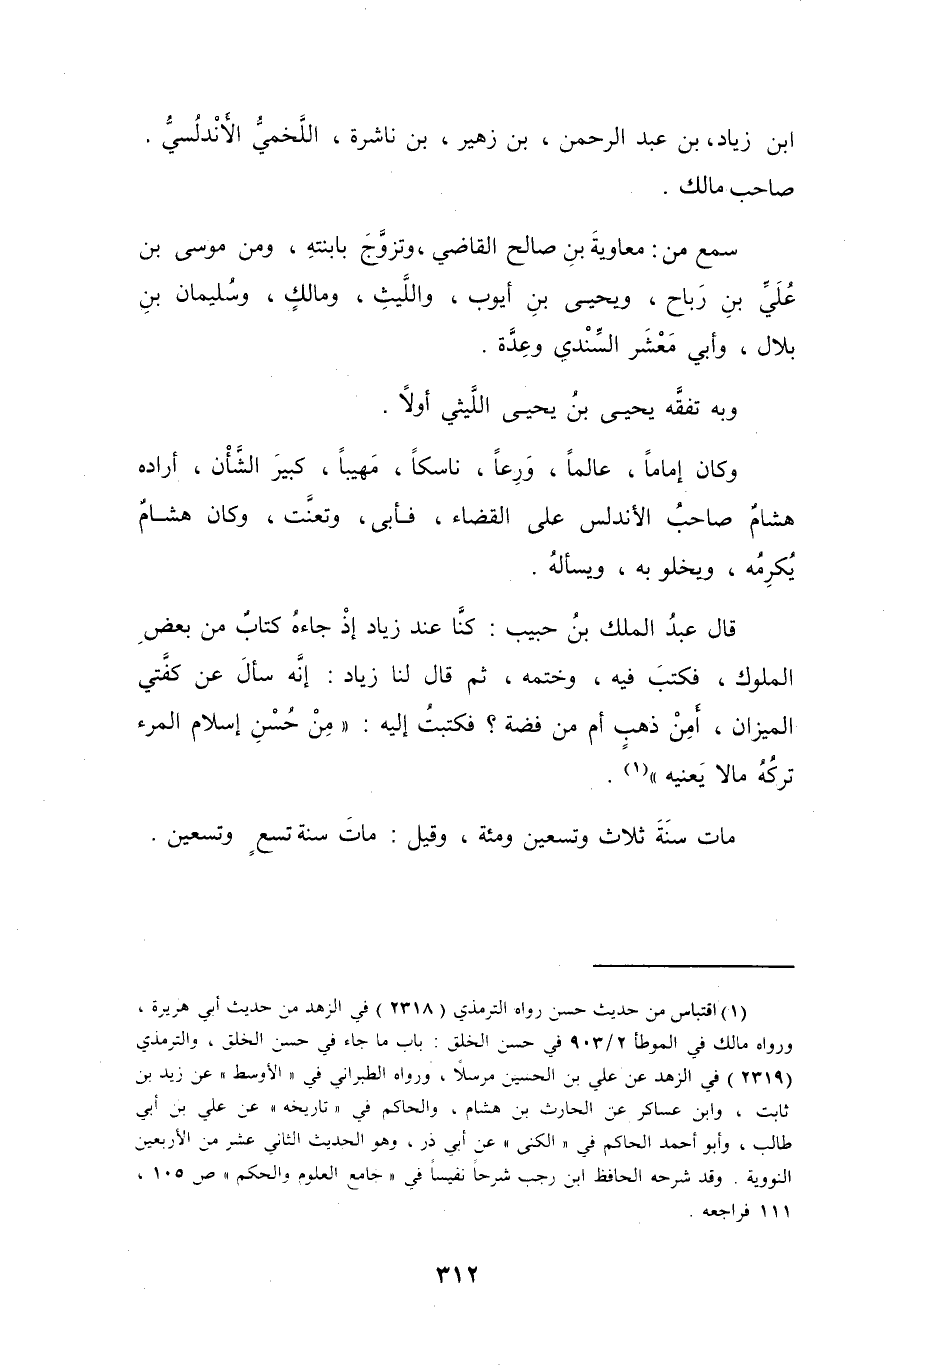 ابن زياد، بن عبد الرحمن ، بن زهير ، بن ناشرة ، اللَّخميُّ الأَنْدلُسيُّ .
صاحب مالك .
سمع من : معاويةَ بنِ صالح القاضي ،وتزوَّجَ بابنتهِ ، ومن موسى بن
عُلَيِّ بنِ رَباح ، ويحيـى بنِ أيوب ، واللَّيثِ ، ومالكٍ ، وسُليمان بنِ
بلال ، وأبي مَعْشَر السِّنْدي وعِدَّة .
وبه تفقَّه يحيـى بنُ يحيـى اللَّيثي أولاً .
وكان إماماً ، عالماً ، وَرِعاً ، ناسكاً ، مَهيباً ، كبيرَ الشَّأْن ، أراده
هشامٌ صاحبُ الأندلس على القضاء ، فـأبى، وتعنَّت ، وكان هشـامٌ
يُكرِمُه ، ويخلو به ، ويسألهُ .
قال عبدُ الملك بنُ حبيب : كنَّا عند زياد إذْ جاءهُ كتابٌ من بعضِ
الملوك ، فكتبَ فيه ، وختمه ، ثم قال لنا زياد : إنَّه سألَ عن كفَّتي
الميزان ، أَمِنْ ذهبٍ أم من فضة ؟ فكتبتُ إليه : « مِنْ حُسْنِ إسلام المرء
تركُهُ مالا يَعنيه »(١) .
مات سنَةَ ثلاث وتسعين ومئة ، وقيل : ماتَ سنة تسعٍ وتسعين .
(١) اقتباس من حديث حسن رواه الترمذي ( ٢٣١٨ ) في الزهد من حديث أبي هريرة ،
ورواه مالك في الموطأ ٩٠٣/٢ في حسن الخلق : باب ما جاء في حسن الخلق ، والترمذي
(٢٣١٩ ) في الزهد عن علي بن الحسين مرسلًا ، ورواه الطبراني في « الأوسط » عن زيد بن
ثابت ، وابن عساكر عن الحارث بن هشام ، والحاكم في « تاريخه » عن علي بن أبي
طالب ، وأبو أحمد الحاكم في « الكنى » عن أبي ذر ، وهو الحديث الثاني عشر من الأربعين
النووية . وقد شرحه الحافظ ابن رجب شرحاً نفيساً في « جامع العلوم والحكم » ص ١٠٥ ،
١١١ فراجعه .
٣١٢